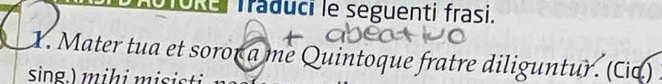 AUTORE Traduci le seguenti frasi.
+ abeativo
1. Mater tua et soror a me Quintoque fratre diliguntur. (Cic.)
sing.) mihi misisti